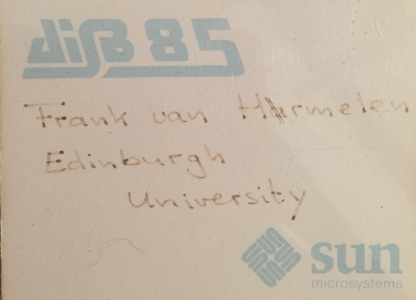 dijB 85
Frank van Harmelen
Edinburgh
University
sun
microsystems